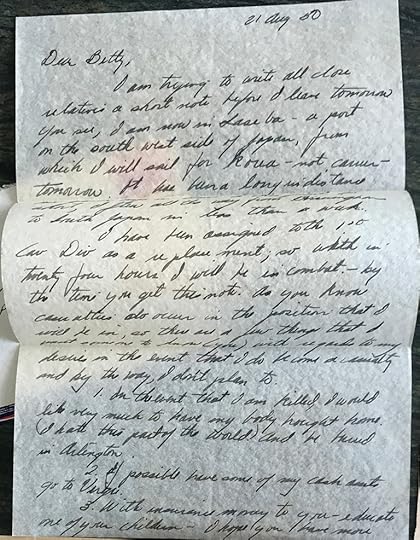 21 Aug 50
Dear Betty,
I am trying to write all close
relatives a short note before I leave tomorrow
You see, I am now in Saseva - a port
on the south west side of Japan, from
which I will sail for Korea - not later
tomorrow It has been a long distance
to south Japan in less than a week.
I have been assigned to the 1st
Cav Div as a replacement, so within
twenty four hours I will be in combat. - by
the time you get this note. As you know
casualties do occur in the position that I
will be in so there are a few things that I
want to you with regards to my
desires in the event that I do become a casualty
and by the way, I don't plan to.
1. In the event that I am killed I would
like very much to have my body brought home.
(I hate this part of the World) and be buried
in Arlington.
2. If possible have some of my cash assets
go to
3. With insurance money to you - educate
one of your children - I hope you have more